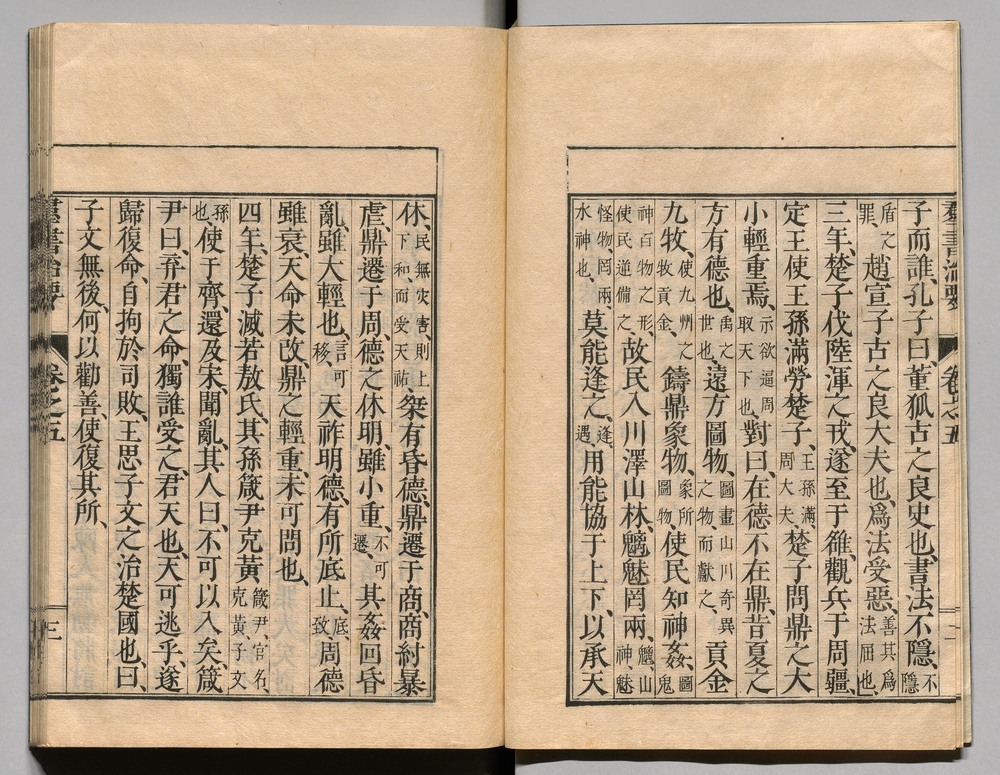 羣書治要 卷之五 二
子而誰、孔子曰、董狐古之良史也、書法不隱、不隱
盾之罪、趙宣子古之良大夫也、爲法受惡、善其爲法屈也、
三年、楚子伐陸渾之戎、遂至于雒、觀兵于周疆、
定王使王孫滿勞楚子、王孫滿、周大夫、楚子問鼎之大
小輕重焉、示欲逼周取天下也、對曰、在德不在鼎、昔夏之
方有德也、禹之世也、遠方圖物、圖畫山川奇異之物而獻之、貢金
九牧、使九州之牧貢金、鑄鼎象物、象所圖物、使民知神姦、圖鬼
神百物之形、使民逆備之、故民入川澤山林、魑魅罔兩、魑山神、魅
怪物、罔兩水神也、莫能逢之、逢遇、用能協于上下、以承天
休、民無灾害、則上下和、而受天祐、桀有昏德、鼎遷于商、商紂暴
虐、鼎遷于周、德之休明、雖小重、不可遷、其姦回昏
亂、雖大輕也、言可移、天祚明德、有所底止、底致、周德
雖衰、天命未改、鼎之輕重、未可問也、
四年、楚子滅若敖氏、其孫箴尹克黃、箴尹、官名、克黃、子文
孫也、使于齊、還及宋、聞亂、其人曰、不可以入矣、箴
尹曰、弃君之命、獨誰受之、君天也、天可逃乎、遂
歸復命、自拘於司敗、王思子文之治楚國也、曰、
子文無後、何以勸善、使復其所、
羣書治要 卷之五 三